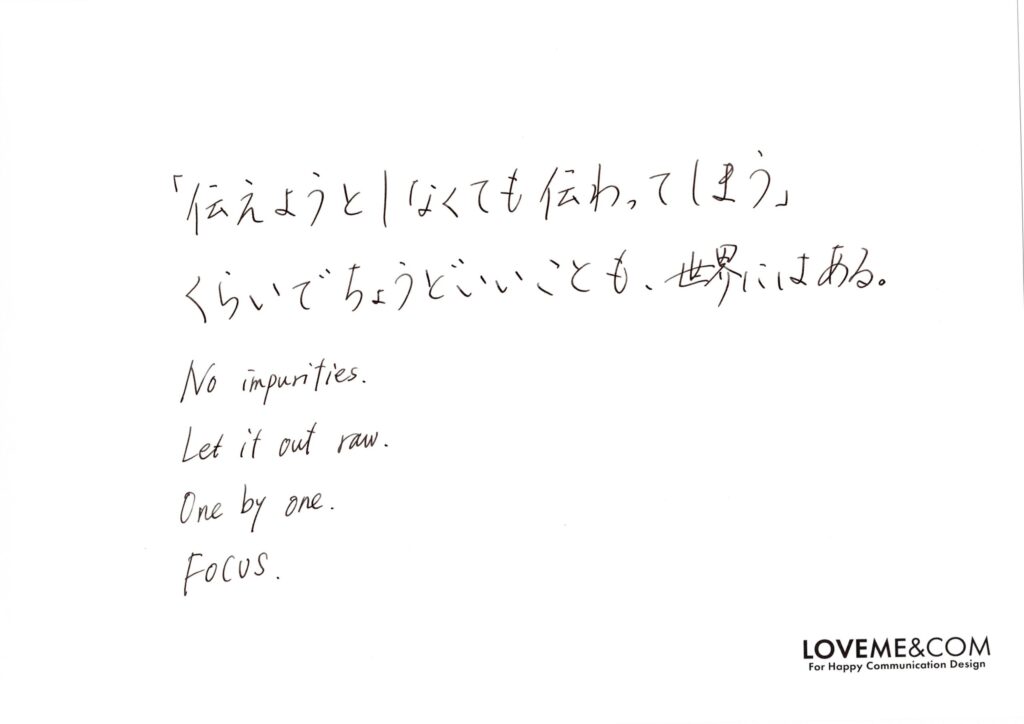 「伝えようとしなくても伝わってしまう」
くらいでちょうどいいことも、世界にはある。
No impurities.
Let it out raw.
One by one.
Focus.
LOVEME&COM
For Happy Communication Design